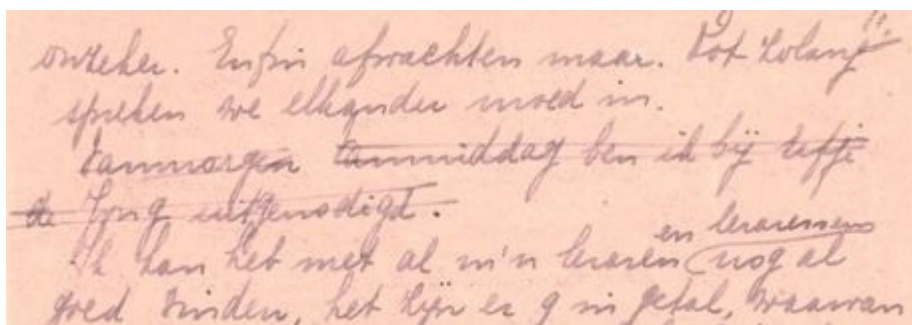 onzeker. Enfin afwachten maar. Tot zolang
spreken we elkander moed in.
vanmorgen vanmiddag ben ik bij
de Jong uitgenodigd.
Ik kan het met al m'n leraren en leraressen nog al
goed vinden, het zijn er 9 in getal, waarvan